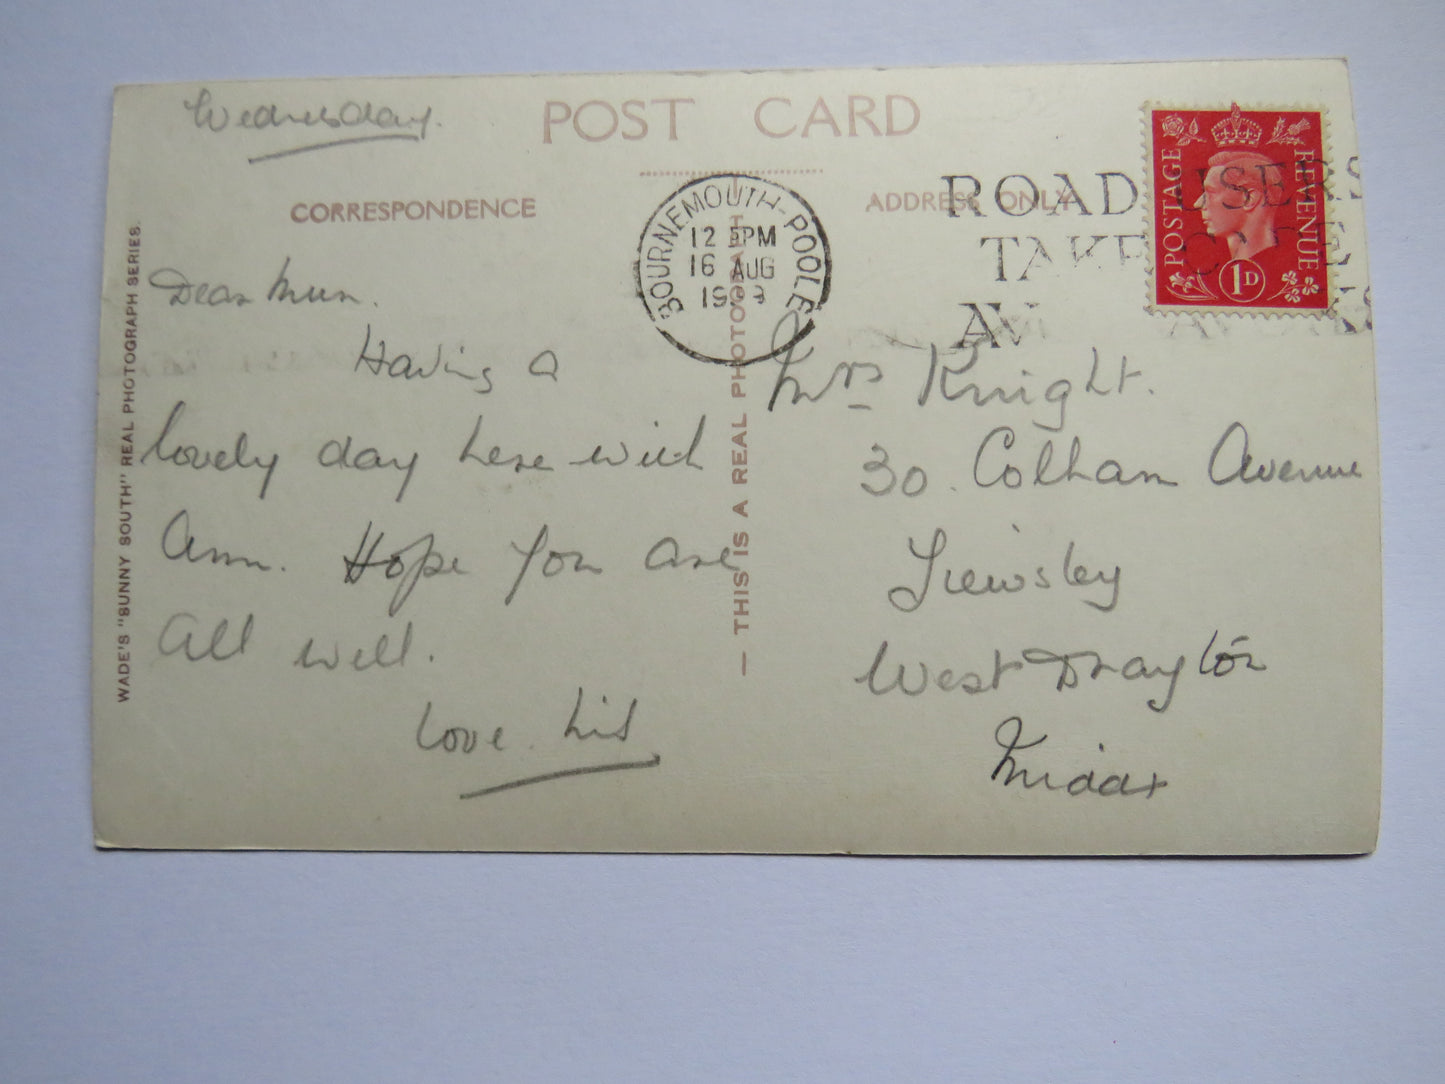 Wednesday.
POST CARD
CORRESPONDENCE
ADDRESS ONLY
WADE'S "SUNNY SOUTH" REAL PHOTOGRAPH SERIES.
— THIS IS A REAL PHOTOGRAPH
BOURNEMOUTH-POOLE
12 PM
16 AUG
ROAD USERS
TAKE CARE
POSTAGE
REVENUE
1D
Dear Mum.
Having a
lovely day here with
Ann. Hope you are
all well.
Love
Mrs Knight.
30. Colham Avenue
Yiewsley
West Drayton
Middx